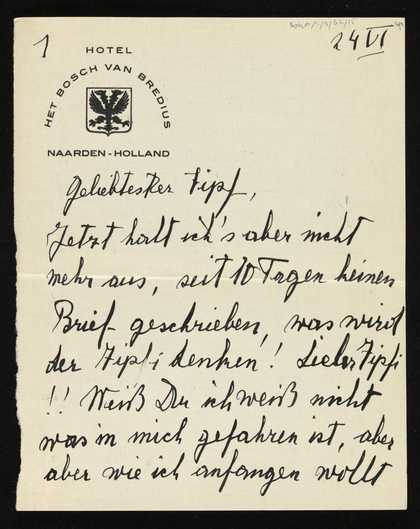 1
24 VI
HOTEL
HET BOSCH VAN BREDIUS
NAARDEN-HOLLAND
Geliebtester Zipf,
Jetzt halt ich's aber nicht
mehr aus, seit 10 Tagen keinen
Brief geschrieben, was wird
der Zipfi denken! Lieber Zipfi
!! Weiß Du ich weiß nicht
was in mich gefahren ist, aber
aber wie ich anfangen wollt